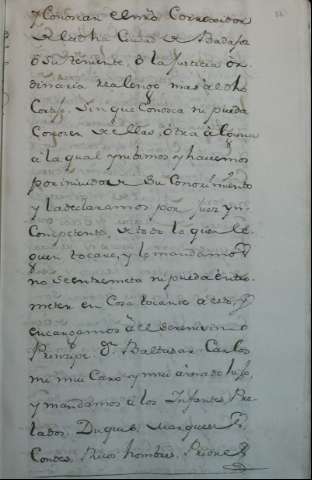 y Conoscan el nro Corregidor
de la dha Ciud de Badajoz
o su teniente, o la Justicia or-
dinaria realengo mas
Cortijo. Sin que Conosca ni pueda
Conocer de ellas, otra
a la qual ynibimos y havemos
por inivida de su Conocimiento
y la declaramos por juez yn-
Competente, de todo lo qual le
quier tocare, y le mandamos
no se entremeta ni pueda entro-
meter en Cosa tocante a esto, y
encargamos a el serenisimo
Prinzipe Dn Baltasar Carlos
mi muy Caro y mui amado hijo,
y mandamos a los Infantes Pre-
lados, Duques, Marqueses
Condes, Ricos hombres, Priores